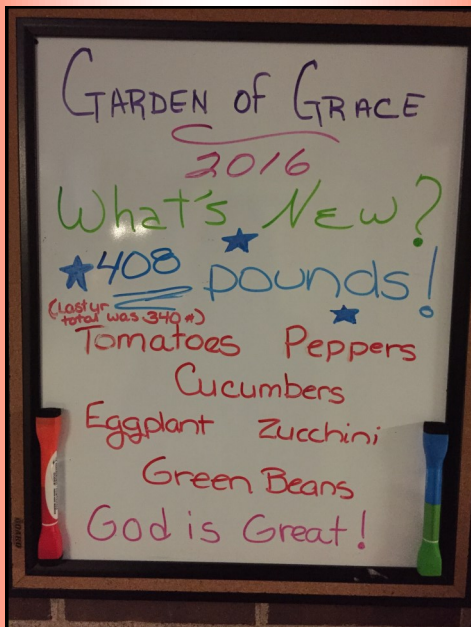 GARDEN of GRACE
2016
What's New?
408 pounds!
(Last yr
total was 340#)
Tomatoes Peppers
Cucumbers
Eggplant Zucchini
Green Beans
God is Great!